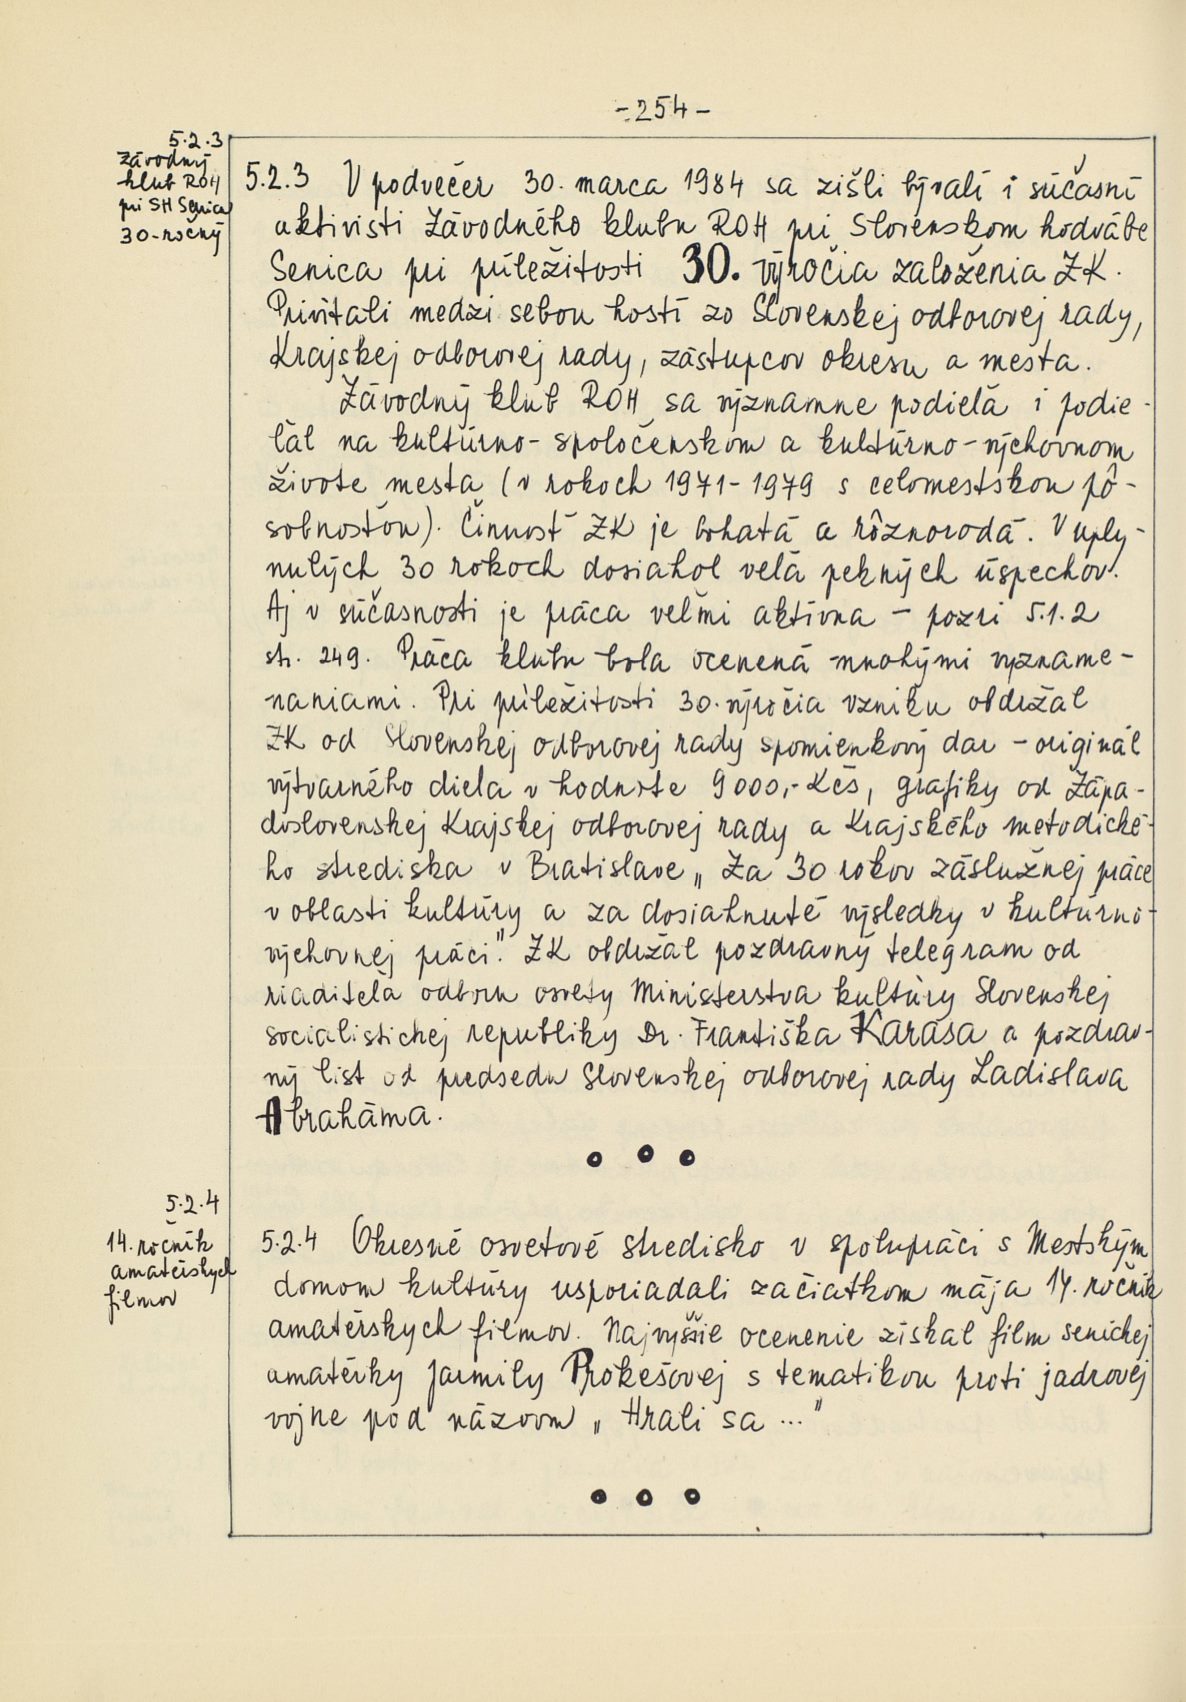 -254-
5.2.3
závodný
klub ROH
pri SH Senica
30-ročný
5.2.3 V podvečer 30. marca 1984 sa zišli bývalí i súčasní
aktivisti Závodného klubu ROH pri Slovenskom hodvábe
Senica pri príležitosti 30. výročia založenia ZK.
Privítali medzi sebou hostí zo Slovenskej odborovej rady,
Krajskej odborovej rady, zástupcov okresu a mesta.
Závodný klub ROH sa významne podieľa i podie-
ľal na kultúrno-spoločenskom a kultúrno-výchovnom
živote mesta (v rokoch 1971-1979 s celomestskou pô-
sobnosťou). Činnosť ZK je bohatá a rôznorodá. V uply-
nulých 30 rokoch dosiahol veľa pekných úspechov.
Aj v súčasnosti je práca veľmi aktívna - pozri 5.1.2
str. 249. Práca klubu bola ocenená mnohými vyzname-
naniami. Pri príležitosti 30. výročia vzniku obdržal
ZK od Slovenskej odborovej rady spomienkový dar - originál
výtvarného diela v hodnote 9000,- Kčs, grafiky od Zápa-
doslovenskej Krajskej odborovej rady a Krajského metodické-
ho strediska v Bratislave „Za 30 rokov záslužnej práce
v oblasti kultúry a za dosiahnuté výsledky v kultúrno-
výchovnej práci". ZK obdržal pozdravný telegram od
riaditeľa odboru osvety Ministerstva kultúry Slovenskej
socialistickej republiky Dr. Františka Karasa a pozdrav-
ný list od predsedu Slovenskej odborovej rady Ladislava
Abraháma.
5.2.4
14. ročník
amatérskych
filmov
5.2.4 Okresné osvetové stredisko v spolupráci s Mestským
domom kultúry usporiadali začiatkom mája 14. ročník
amatérskych filmov. Najvyššie ocenenie získal film senickej
amatérky Jarmily Prokešovej s tematikou proti jadrovej
vojne pod názvom „Hrali sa ..."